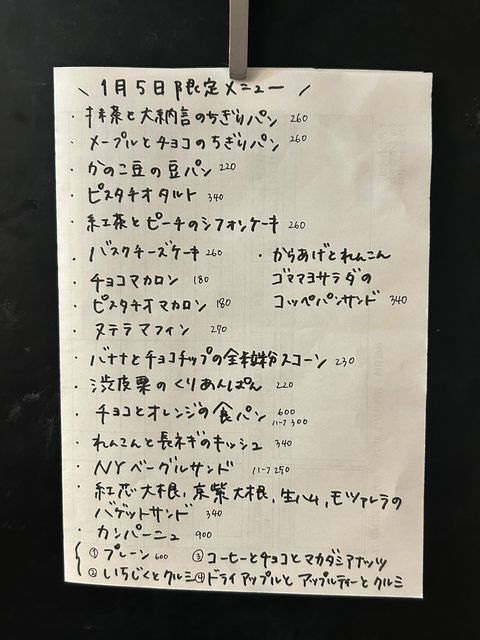 \ 1月5日限定メニュー /
・抹茶と大納言のちぎりパン 260
・メープルとチョコのちぎりパン 260
・かのこ豆の豆パン 220
・ピスタチオタルト 340
・紅茶とピーチのシフォンケーキ 260
・バスクチーズケーキ 260
・チョコマカロン 180
・ピスタチオマカロン 180
・からあげとれんこん
ゴママヨサラダの
コッペパンサンド 340
・ヌテラマフィン 270
・バナナとチョコチップの全粒粉スコーン 230
・渋皮栗のくりあんぱん 220
・チョコとオレンジの食パン 600
ハーフ 300
・れんこんと長ネギのキッシュ 340
・NYベーグルサンド ハーフ 250
・紅芯大根,京紫大根,生ハム,モツァレラの
バゲットサンド 340
・カンパーニュ 900
①プレーン 600 ③コーヒーとチョコとマカダミアナッツ
②いちじくとクルミ ④ドライアップルとアップルティーとクルミ